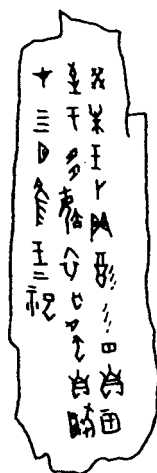 癸未王卜貞酒彡日自上甲
至于多毓衣亡自
在四月隹王二祀